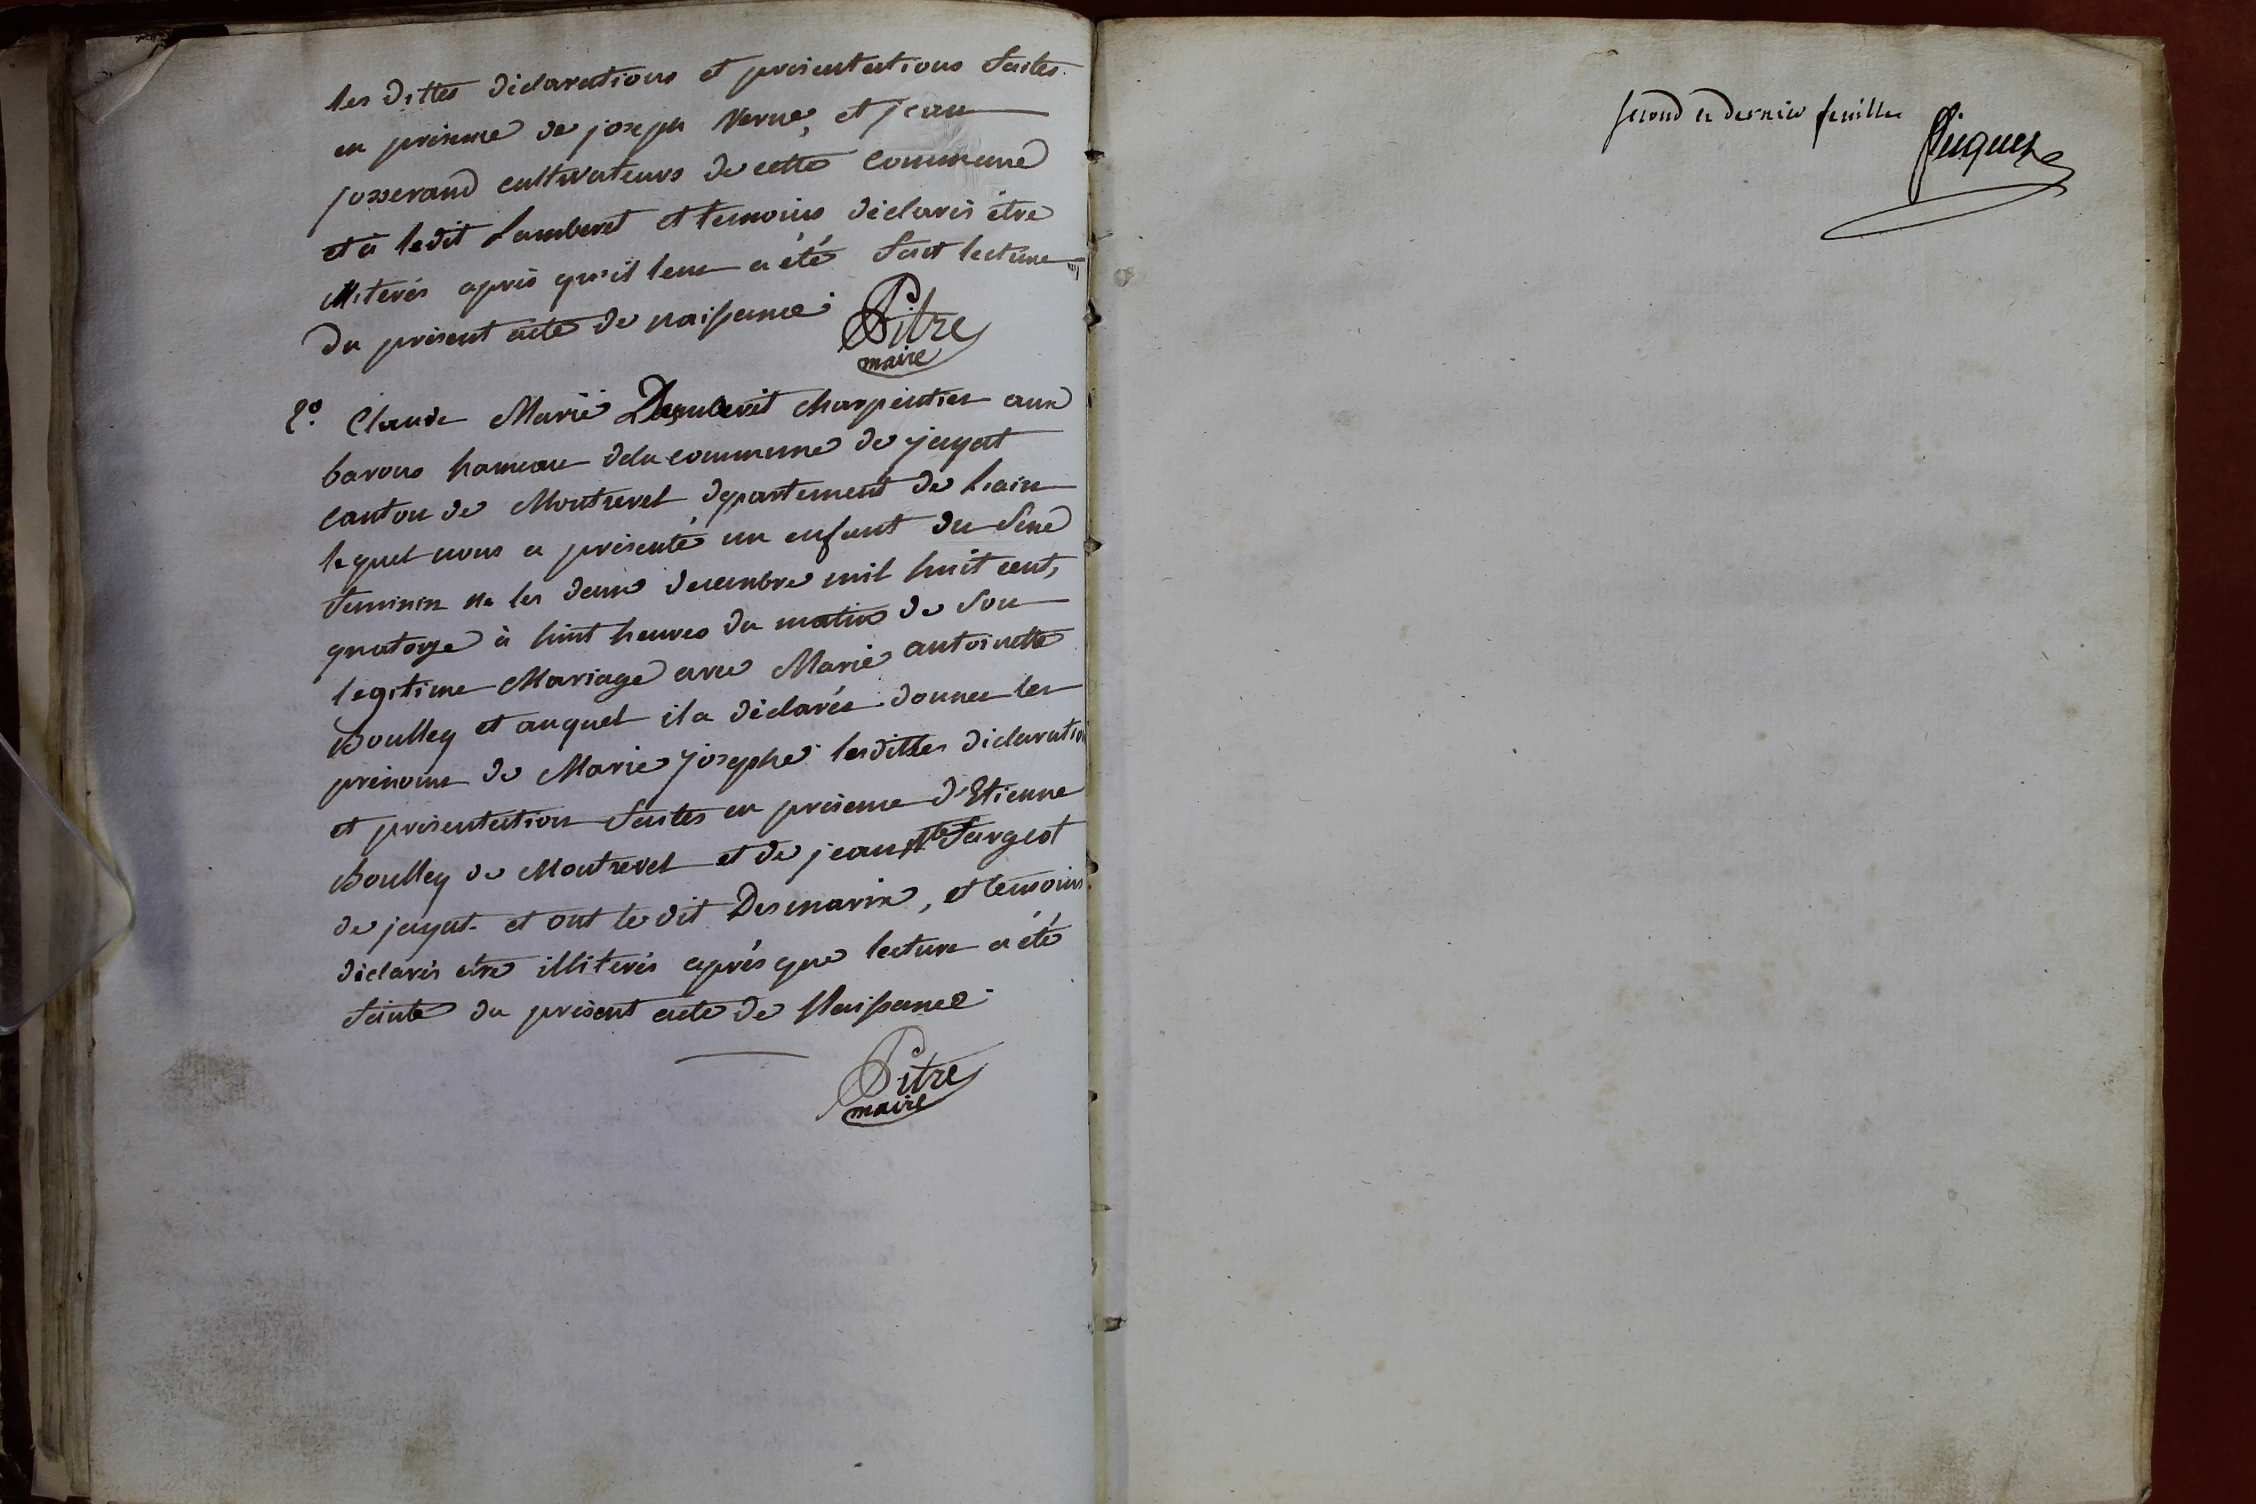 les dittes déclarations et présentations faites
en présence de joseph Verne, et jean
josserand cultivateurs de cette commune
et à ledit Lamberet et temoins déclarés être
illiterés après qu'il leur a été fait lecture
du présent acte de naissance.
Pitre
maire
2.° Claude Marie charpentier aux
barons hameau dela commune de jayat
canton de Montrevel département de l'ain
lequel nous a présenté un enfant du sexe
feminin né les deux decembre mil huit cent,
quatorze à huit heures du matin de son
légitime Mariage avec Marie antoinette
Boulley et auquel il a déclaré donner les
prénoms de Marie josephe lesdittes déclaration
et présentation faites en présence d'Etienne
Boulley de Montrevel et de jean Bte fargeot
de jayat. et ont le dit Desmaris, et temoins
déclarés etre illiterés après que lecture a été
fainte du présent acte de Naissance.
Pitre
maire
second et dernier feuillet